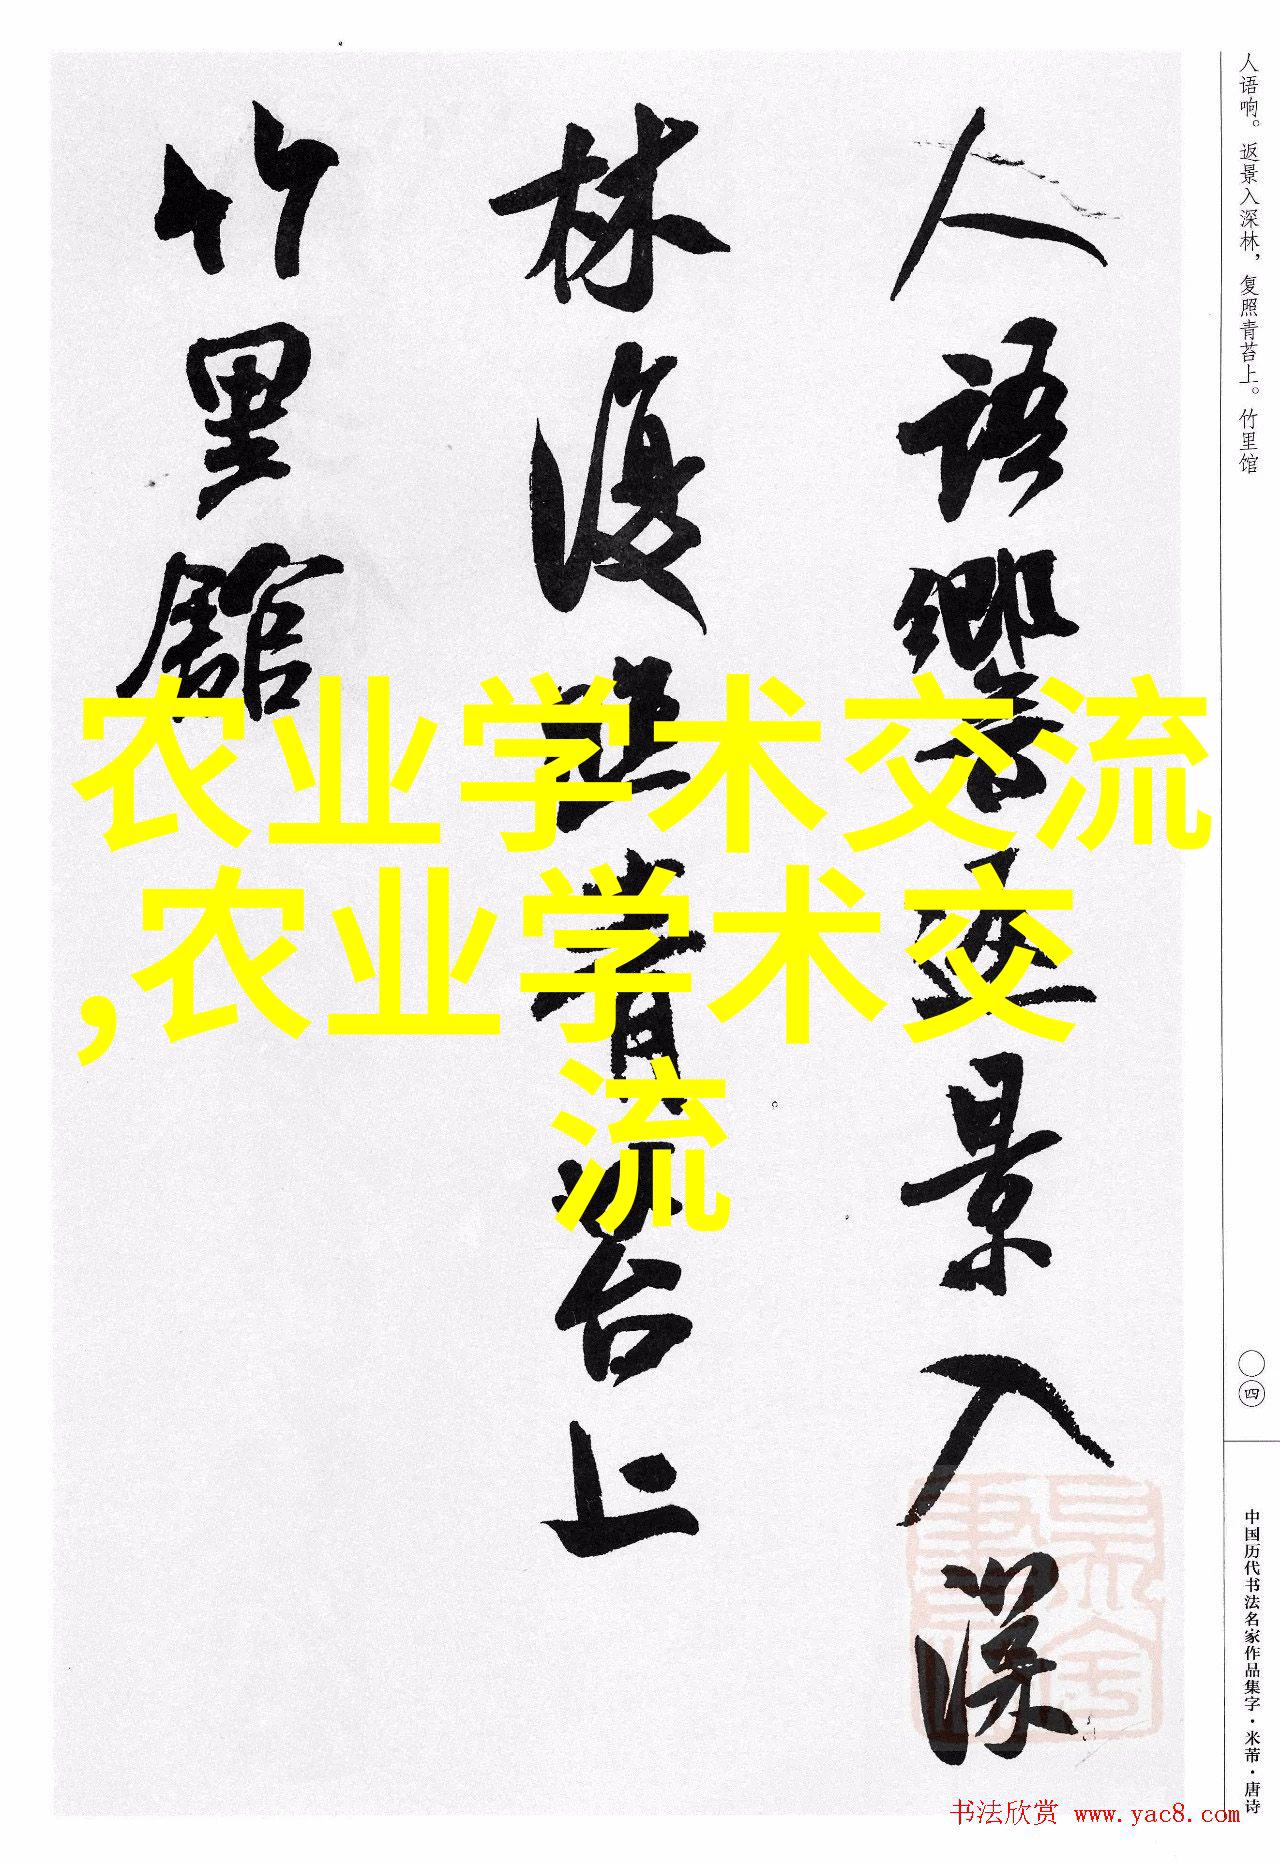 人语响。返景入深林，复照青苔上。竹里馆
人語響返景入深
林復照青苔上
竹里館
农业学术交流
,农业学术交
流
四
中国历代书法名家作品集字·米芾·唐诗
书法欣赏 www.yac8.com